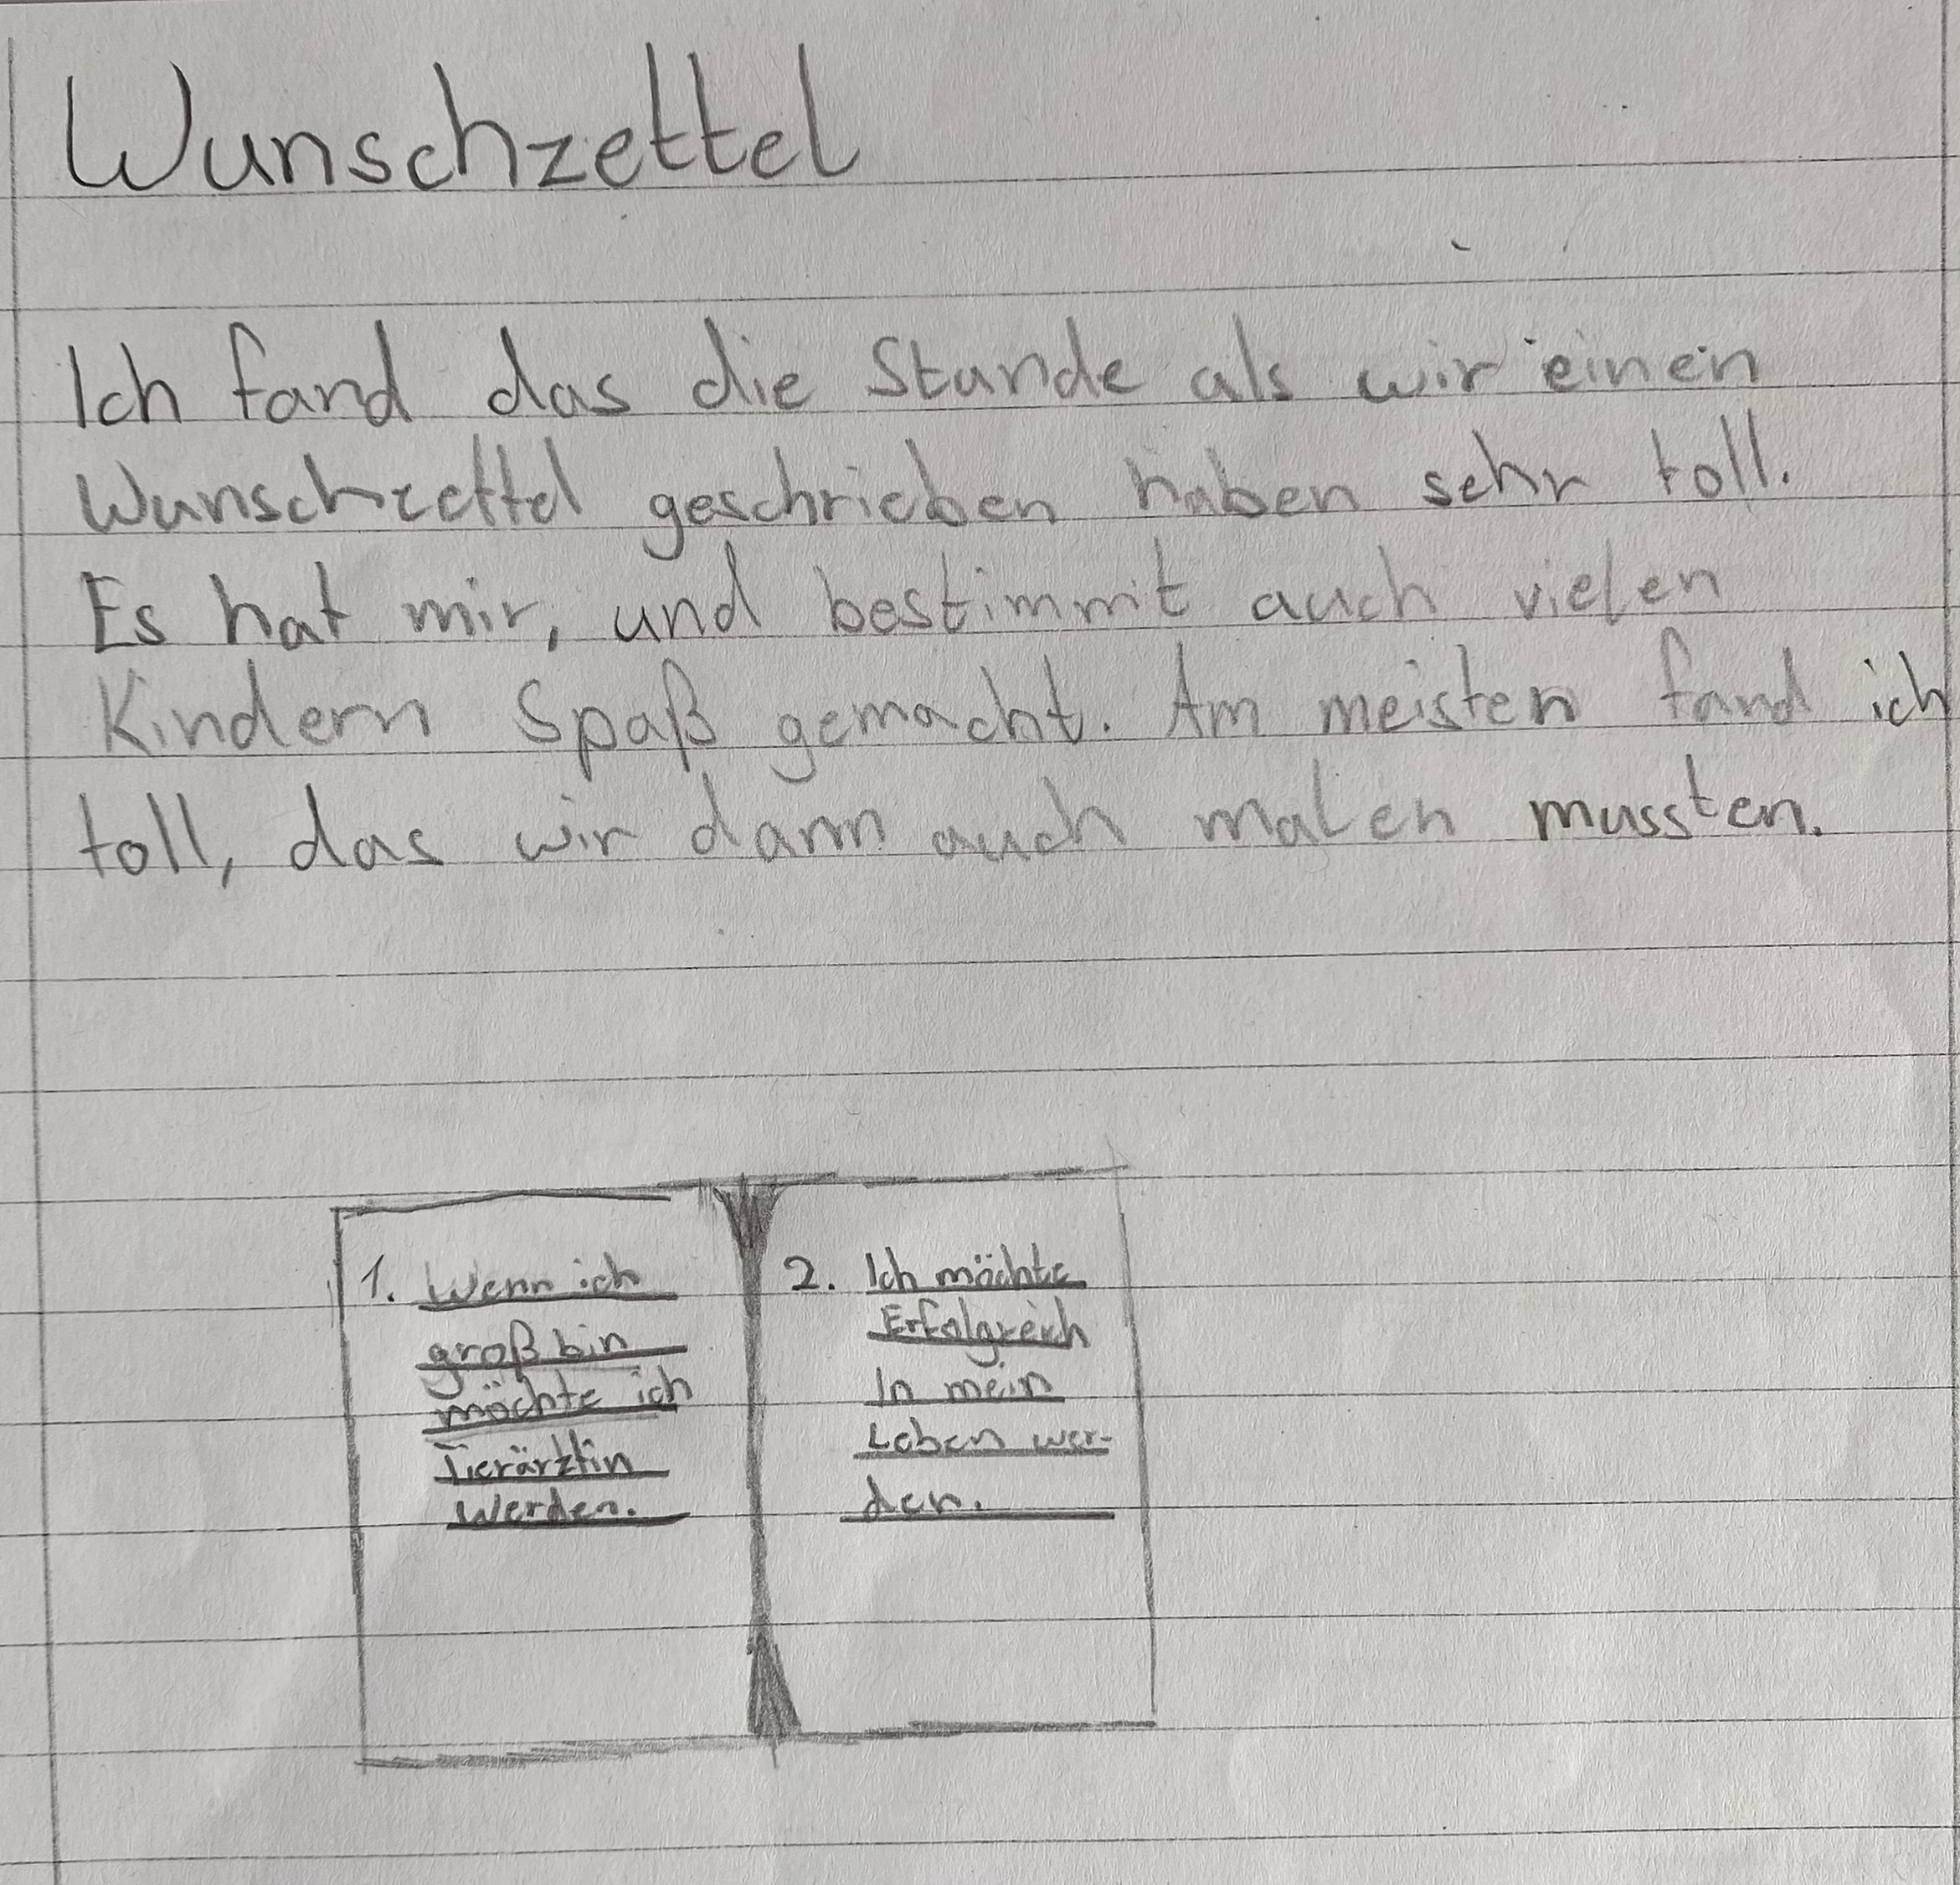 Wunschzettel
Ich fand das die Stunde als wir einen
Wunschzettel geschrieben haben sehr toll.
Es hat mir, und bestimmt auch vielen
Kindern Spaß gemacht. Am meisten fand ich
toll, das wir dann auch malen mussten.
1. Wenn ich
groß bin
möchte ich
Tierärztin
werden.
2. Ich möchte
Erfolgreich
In mein
Leben wer-
den.